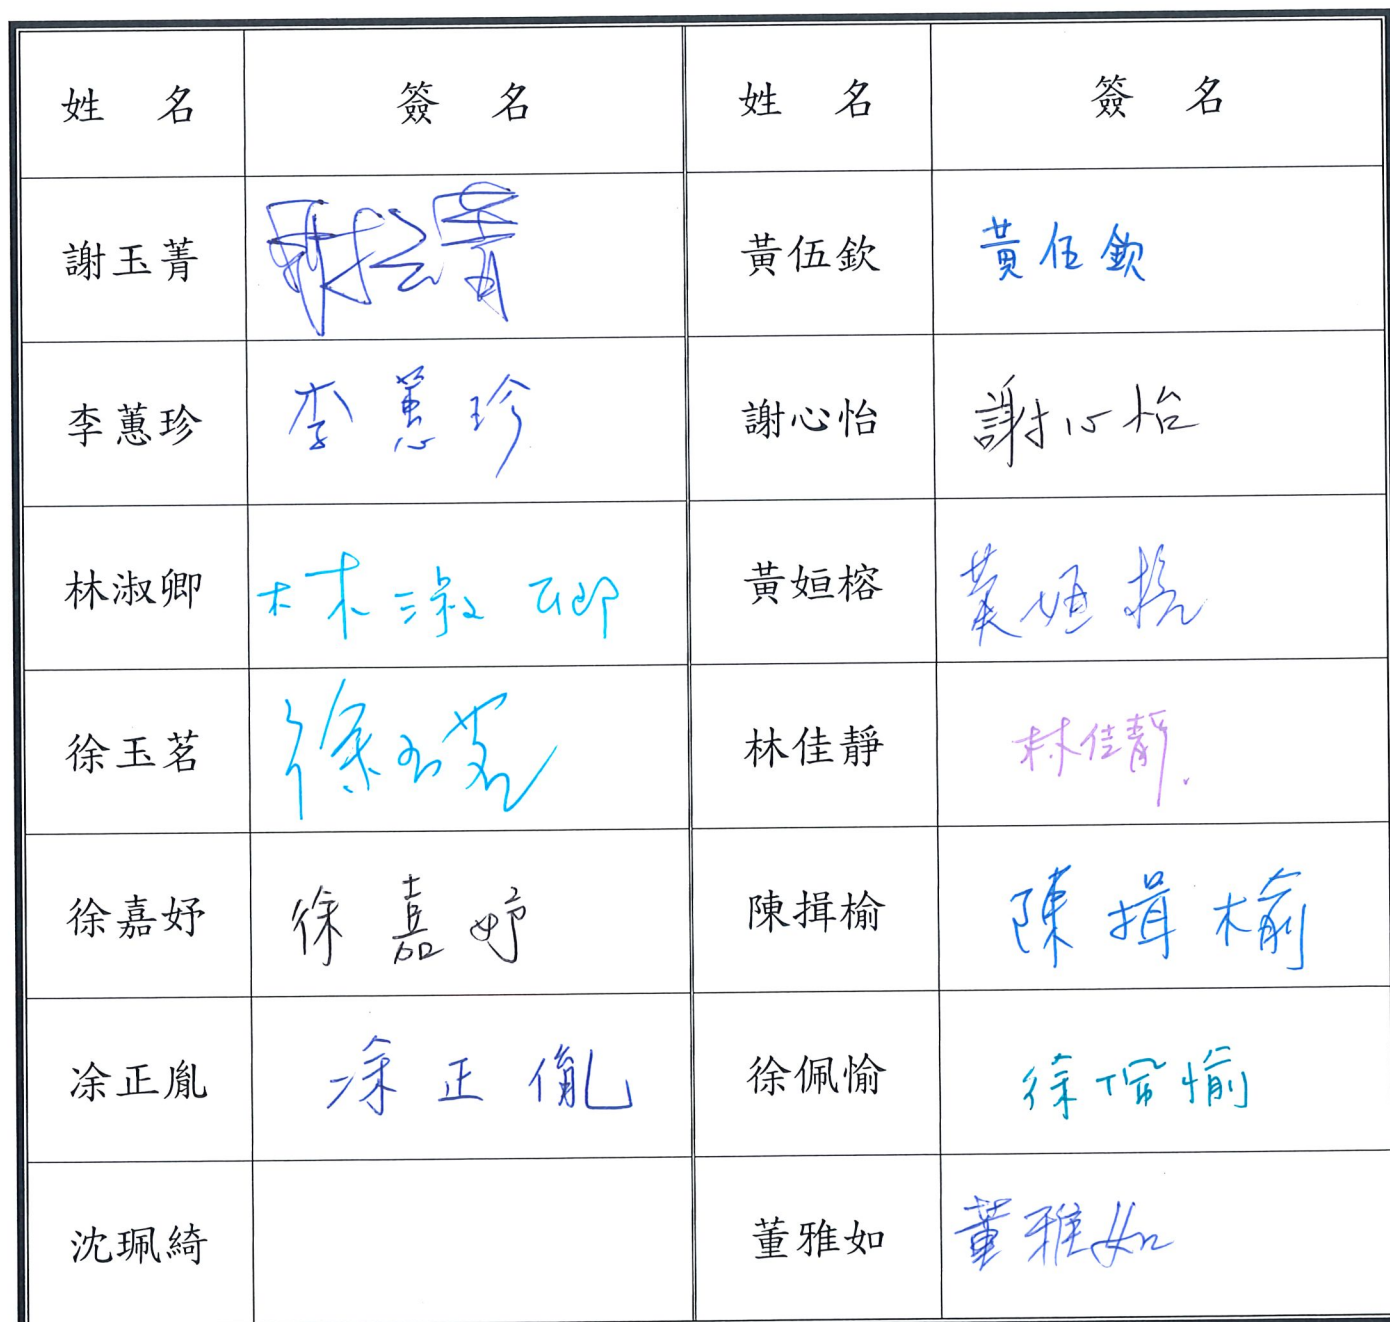 姓 名 簽 名 姓 名 簽 名
謝玉菁 謝玉菁 黃伍欽 黃伍欽
李蕙珍 李蕙珍 謝心怡 謝心怡
林淑卿 林淑卿 黃姮榕 黃姮榕
徐玉茗 徐玉茗 林佳靜 林佳靜
徐嘉妤 徐嘉妤 陳揖榆 陳揖榆
凃正胤 凃正胤 徐佩愉 徐佩愉
沈珮綺 董雅如 董雅如